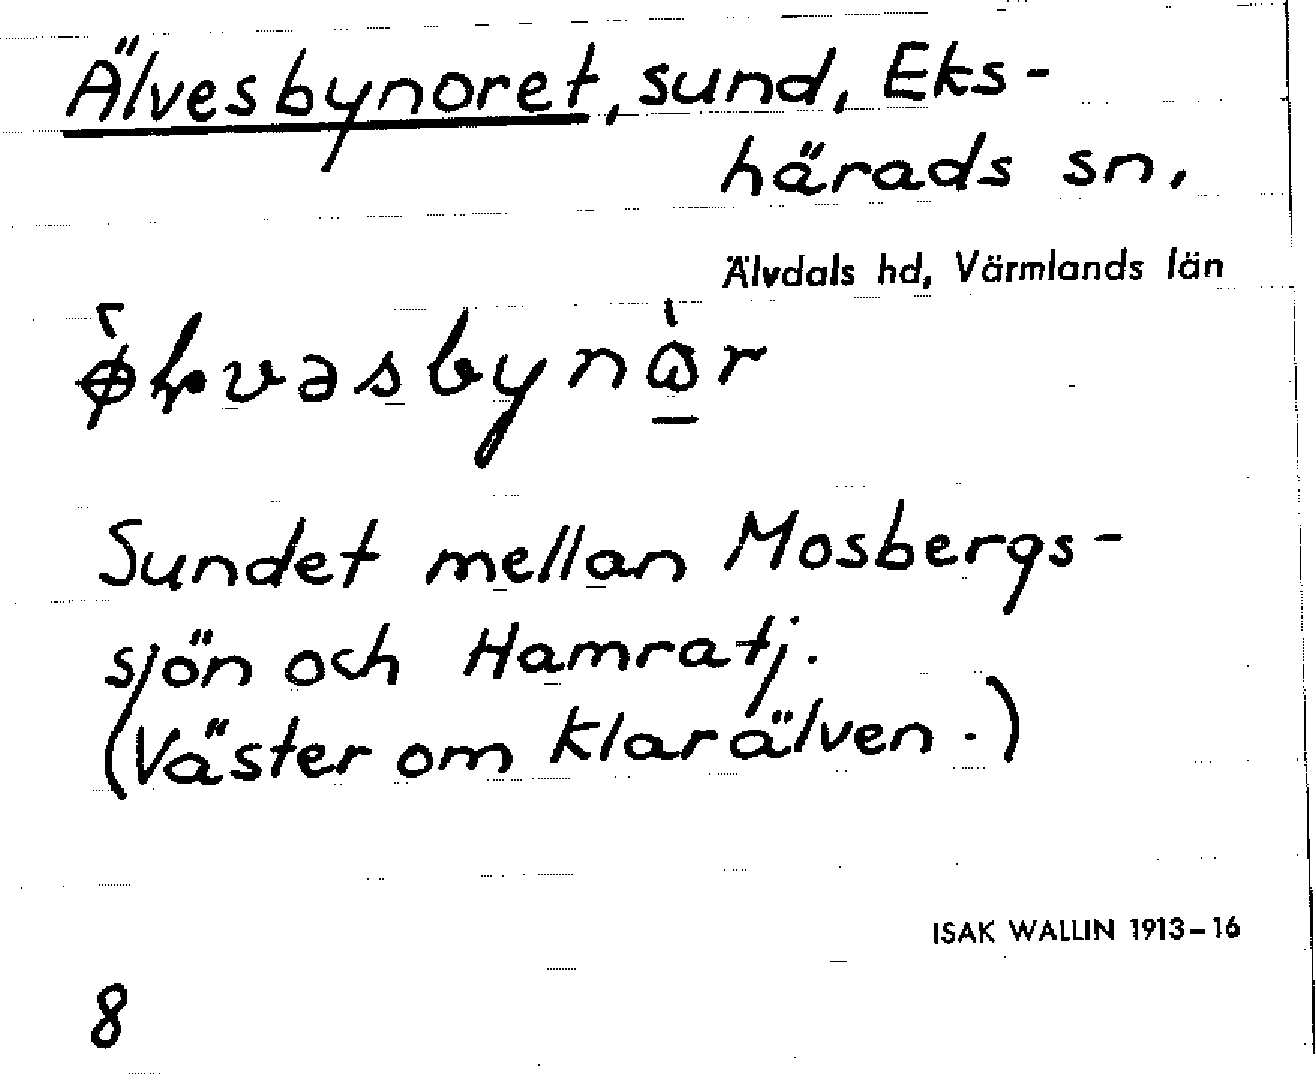 Älvesbynoret, sund, Eks-
härads sn,
Älvdals hd, Värmlands län
Sundet mellan Mosbergs-
sjön och Hamratj.
(Väster om Klarälven.)
ISAK WALLIN 1913-16
8